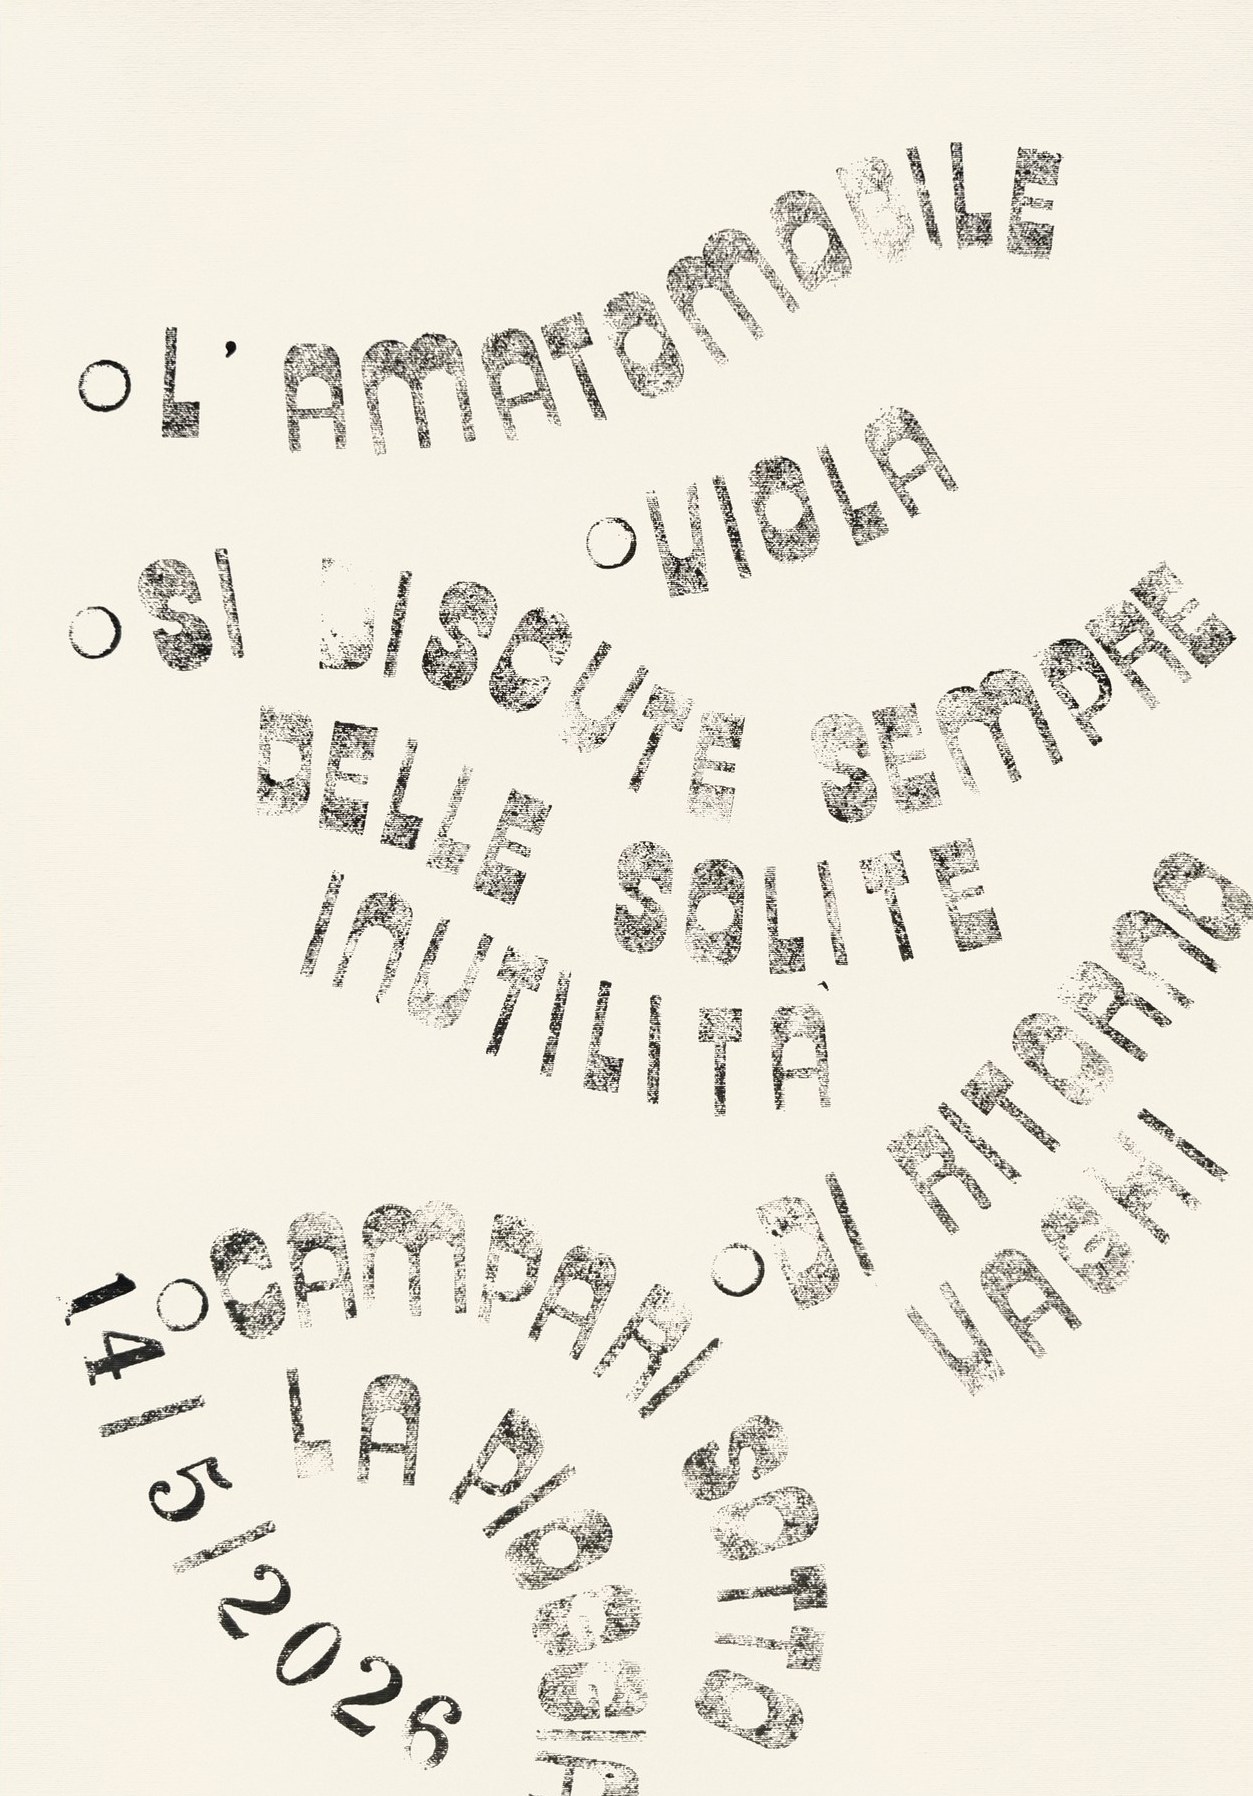 L' AMATOMOBILE
VIOLA
SI DISCUTE SEMPRE
DELLE SOLITE
INUTILITÀ
DI RITORNO
VAGHI
CAMPARI SOTTO
LA PIOGGIA
14/5/2026